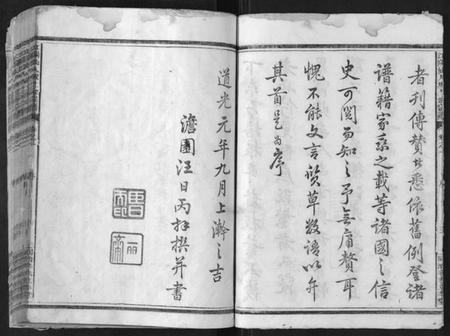 者刊傳贊甘悉依舊例登諸
譜籍家系之載等諸國之信
史可閱而知之予無庸贅耳
愧不能文言質草数語以弁
其首是為序
道光元年九月上澣之吉
澹園汪日丙拜撰并書